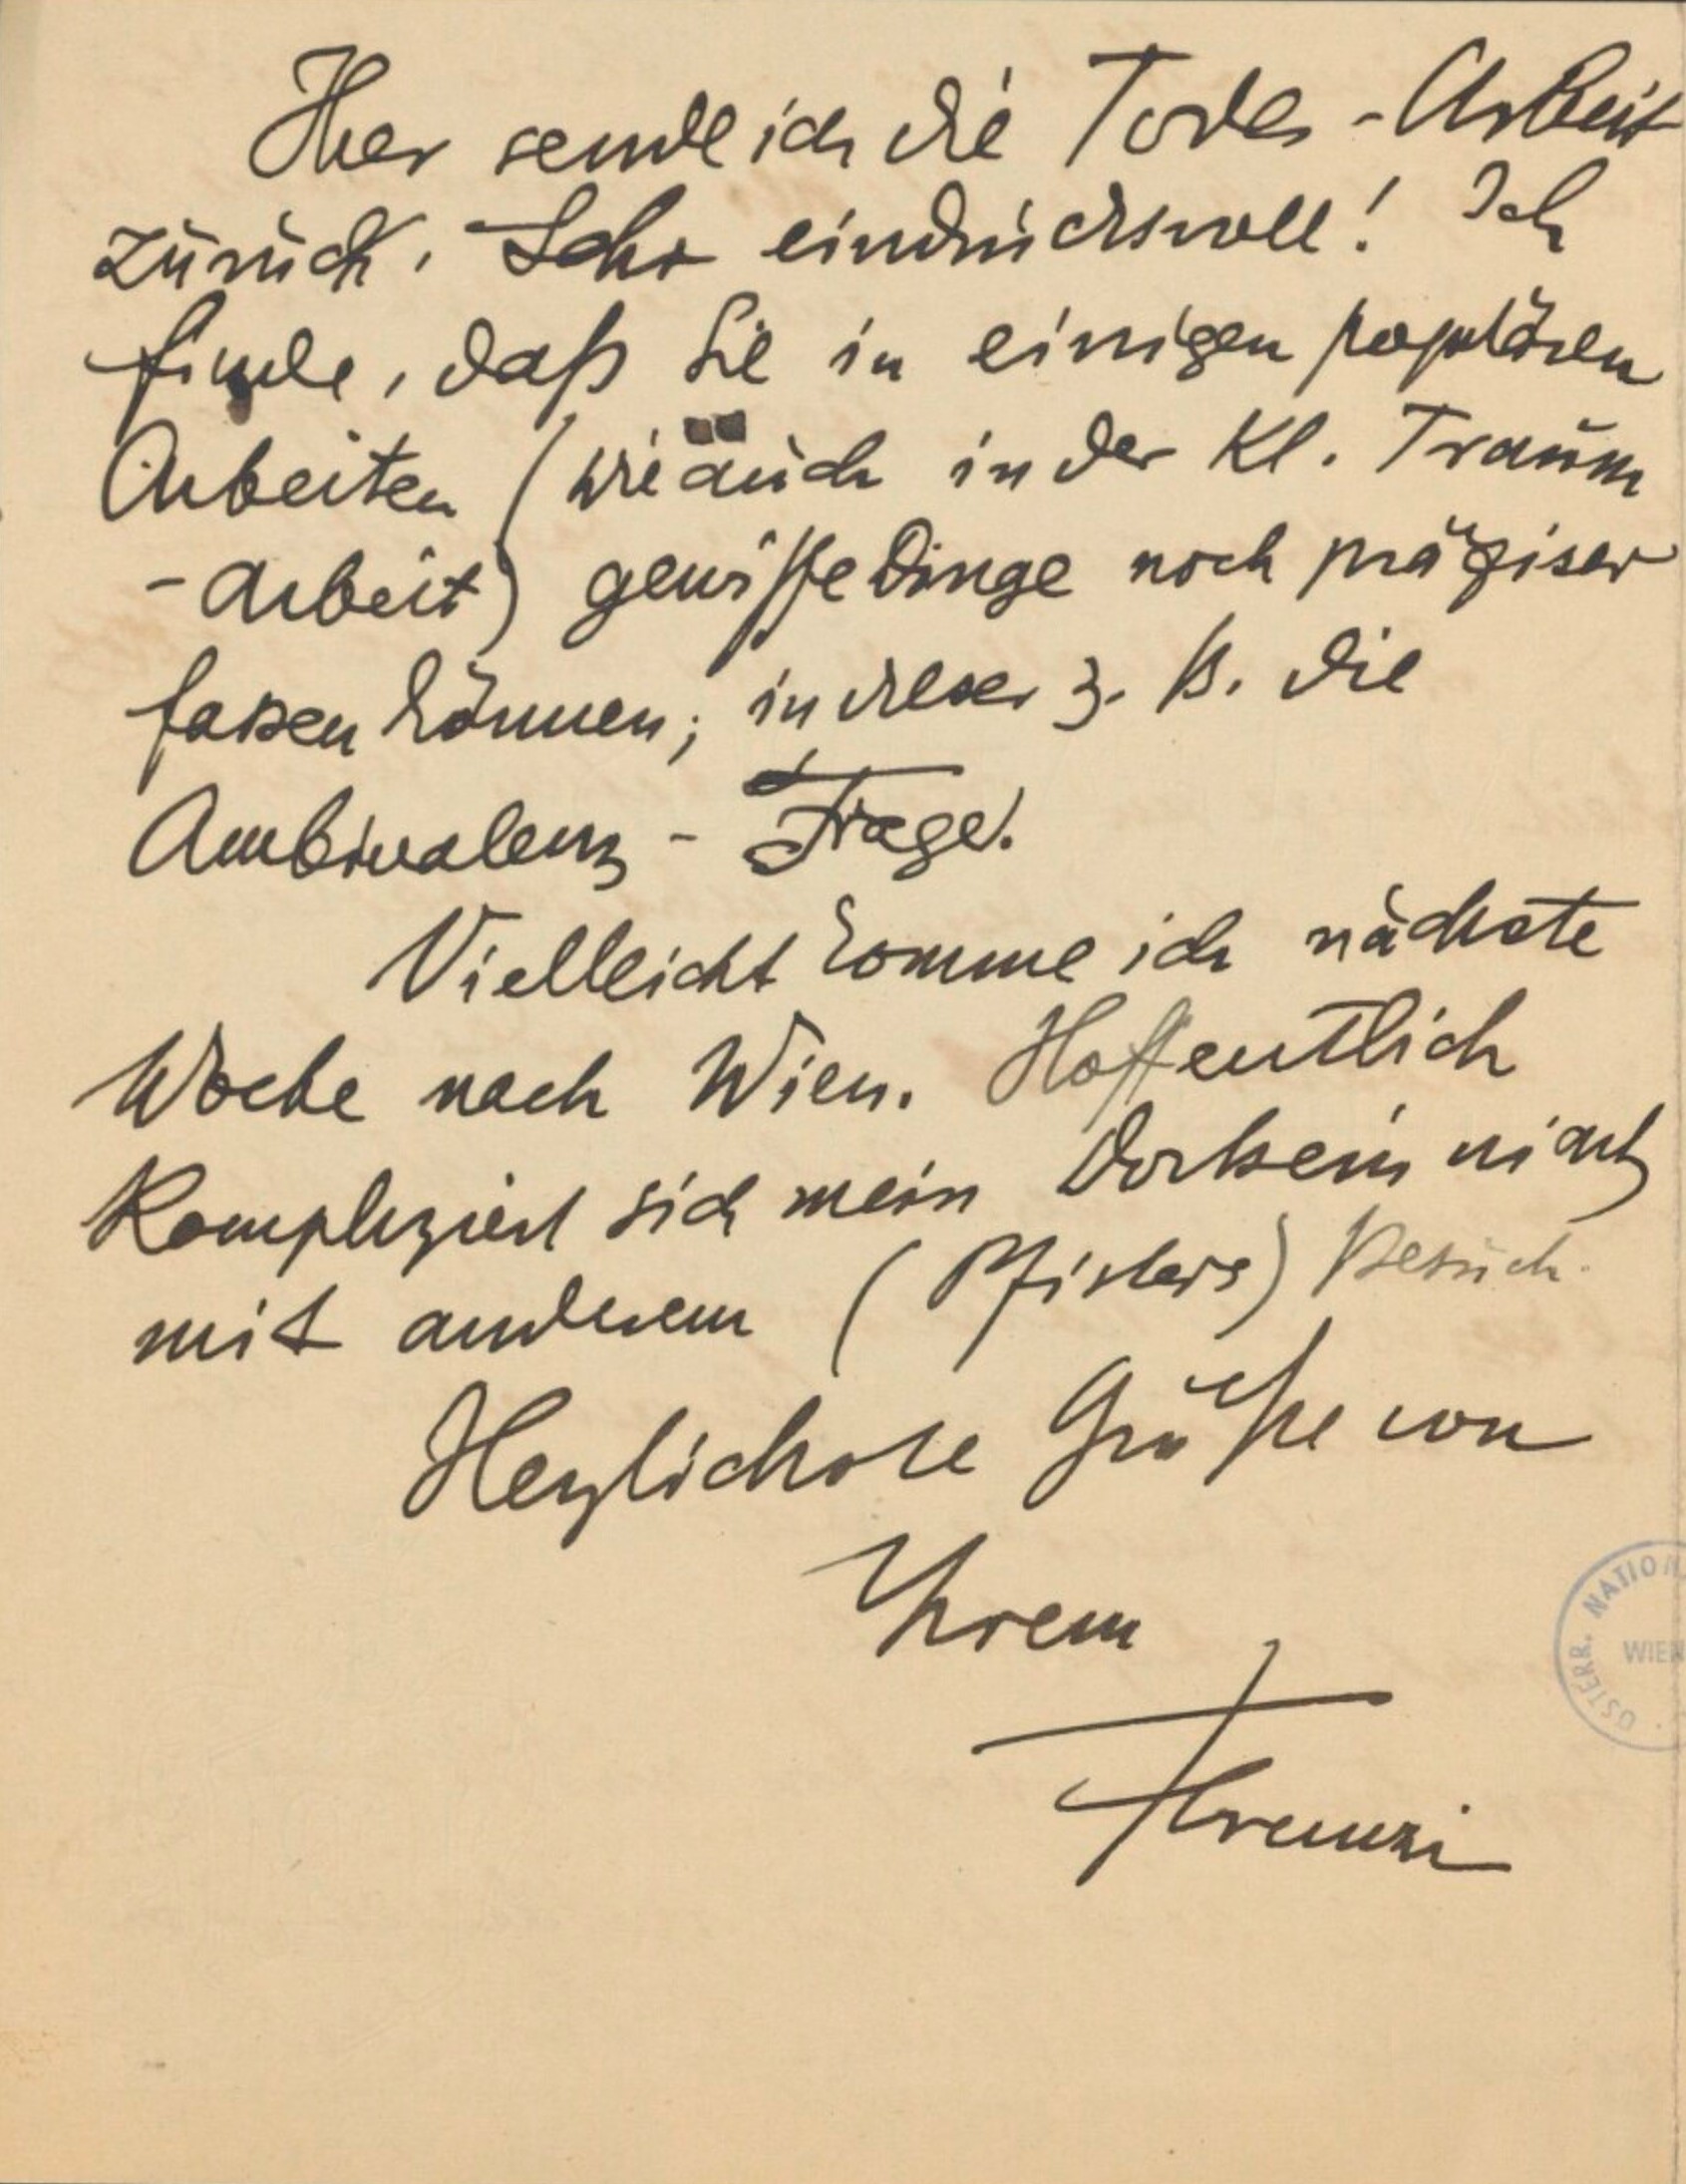 Hier sende ich die Todes-Arbeit
zurück. Sehr eindrucksvoll! Ich
finde, daß Sie in einigen populären
Arbeiten (wie auch in der Kl. Traum
-arbeit) gewisse Dinge noch präziser
fassen können; in dieser z. B. die
Ambivalenz-Frage.
Vielleicht komme ich nächste
Woche nach Wien. Hoffentlich
kompliziert sich mein Dortsein nicht
mit anderem (Pfisters) Besuch.
Herzlichste Grüße von
Ihrem
Ferenczi
ÖSTERR. NATION
WIEN